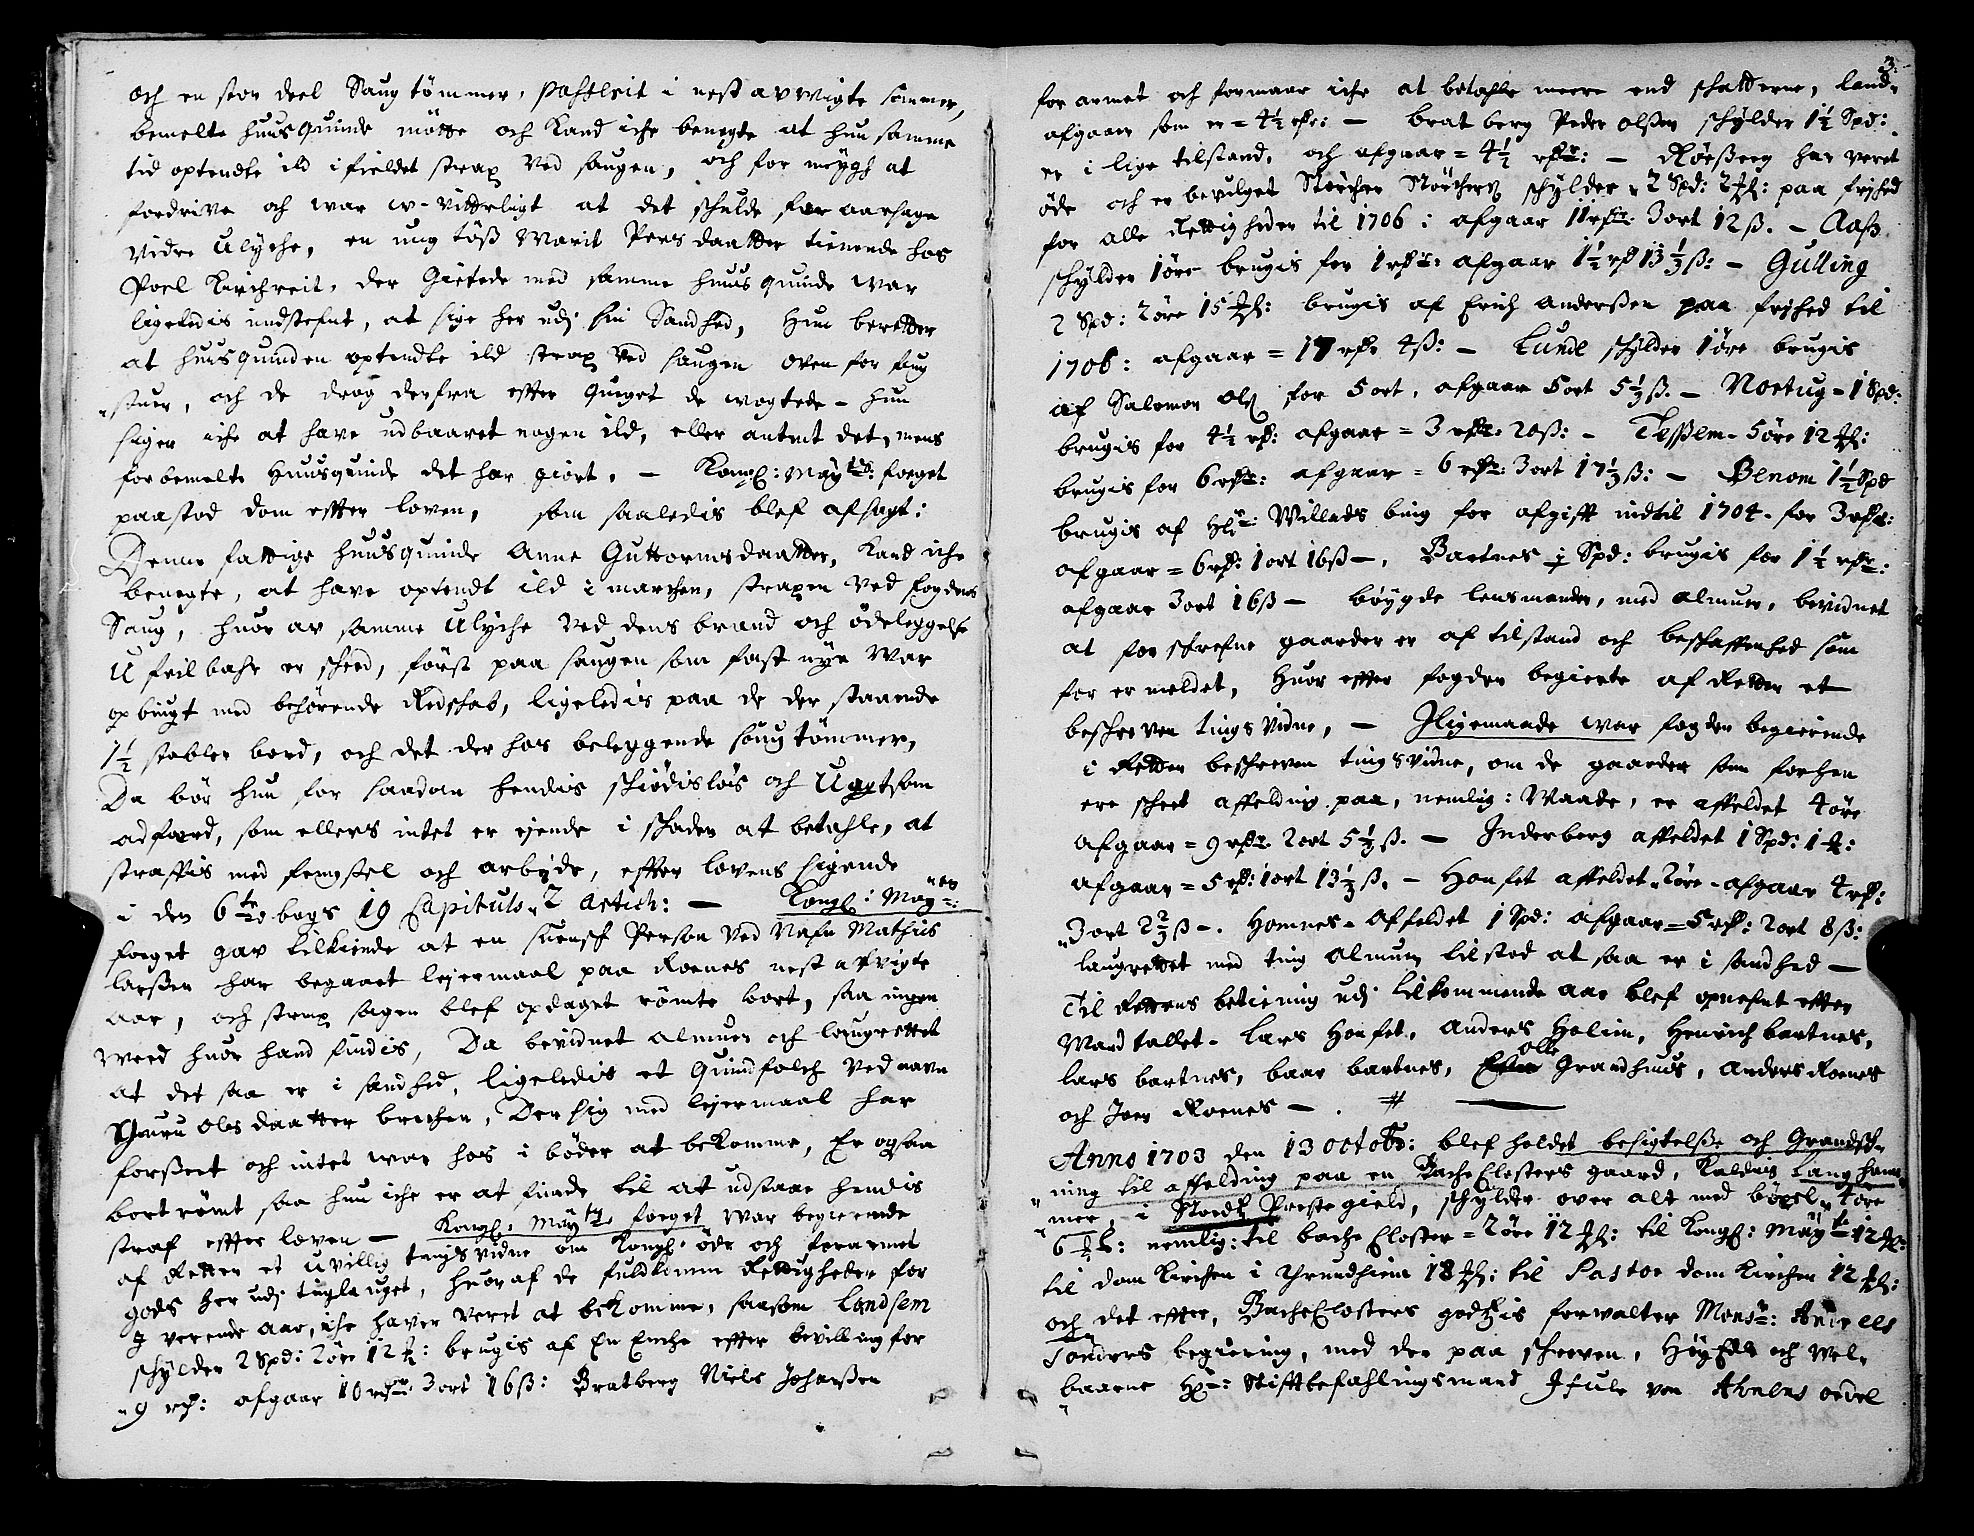 och en stor deel Saug tømmer, i nest avvigte sommer,
bemelte huusquinde møtte och kand iche benegte at hun samme
tid optendte ild i fieldet strax ved saugen, och for mygh at
fordrive och war u-vitterligt at det schulde foraarsage
videre Ulyche, en ung tøs Marit Pers daatter tienende hos
Poel Kirchreit, der Gietede med samme huusquinde war
ligeledis indstefnt, at sige her udj sin Sandhed, Hun beretter
at huusquinden optendte ild strax ved saugen oven for saug
stuen, och de drog derfra effter Queget de wogtede - hun
siger iche at have udbaaret nogen ild, eller antent det, mens
forbemelte Huusquinde det har giort, - Kongl: Mayts: foeget
paastod dom effter loven, som saaledis blef afsagt:
Denne fattige huusquinde Anne Guttormsdaatter, kand iche
benegte, at have optendt ild i marchen, straxen ved fogdens
Saug, huor av samme Ulyche ved dens brand och ødeleggelse
Ufeilbahr er scheed, først paa saugen som fast nye war
opbiugt med behørende Redschab, ligeledis paa de der staaende
1½ stabler bord, och det der hos beleggende saug tømmer,
Da bør hun for saadan hendis schiødisløs och Ugetsom
adfærd, som ellers intet er eiende i schaden at betahle, at
straffis med fengsel och arbeide, effter lovens sigende
i den 6te bogs 19 Capituls 2 Artich: - Kongl: Mayts:
foeget gav tilkiende at en suensch Person ved Nafn Mathius
larssen har begaaet leiermaal paa Roenes nest afvigte
aar, och strax sagen blef opdaget rømte bort, saa ingen
weed huor hand findis, Da bevidnet almuen och laugrettet
at det saa er i sandhed, ligeledis et Quindfolch ved navn
Guru Olsdaatter brechen, Der sig med leiermaal har
forseet och intet war hos i bøder at bekomme, Er ogsaa
bortrømt saa hun iche er at finde til at udstaae hendis
straf effter loven - Kongl: Mayts foeget war begierende
af Retten et Uvillig tings vidne om Kongl: øde och forarmet
gods her udj tinglauget, huoraf de fuldkomne Rettigheder for
I verende aar, iche haver veret at bekomme, saasom Landsem
schylder 2 Spd: 2 øre 12 : brugis af En Enche effter bevilling for
9 rd: afgaar 10 rdr: 3 ort 16 ß: Bratberg Niels Johanssen
3.
forarmet och formaar iche at betahle meere end schatterne, land-
afgaar som er = 4½ rdr: - bratberg Peder olssen schylder 1½ Spd:
er i lige tilstand, och afgaar = 4½ rdr: - Rørsserg har veret
øde och er bevilget Størcher Størchers schylder 2 Spd: 2 : paa frihed
for alle Rettigheder til 1706: afgaar 11 rdr: 3 ort 12 ß. - Aass
schylder 1 øre brugis for 1 rdr: afgaar 1½ rd 13⅓ ß: - Gulling
2 Spd: 2 øre 15 : brugis af Erich Anderssen paa frihed til
1706: afgaar = 17 rdr 4 ß: - Lunde schylder 1 øre brugis
af Salomon Ols for 5 ort, afgaar 5 ort 5⅓ ß. - Noetug - 1 Spd:
brugis for 4½ rd: afgaar = 3 rdr: 20 ß: - Tessem - 5 øre 12 :
brugis for 6 rdr: afgaar = 6 rdr: 3 ort 17⅓ ß: - Benom 1½ Spd
brugis af Hr: Willads bing for afgifft indtil 1704 - for 3 rdr:
afgaar = 6 rd: 1 ort 16 ß -, Bartnes ½ Spd: brugis for 1½ rdr:
afgaar 3 ort 16 ß - bøygde lensmanden, med almuen, bevidnet
at forschrefne gaarder er af tilstand och beschaffenhed som
før er meldet, Huor effter fogden begierte af Retten et
beschreven tings vidne, - Iligemaade war fogden begierende
i Retten beschreven tings vidne, om de gaarder som forhen
ere scheet affelding paa, nemlig: Waade, er affeldet 4 øre
afgaar = 9 rdr. 2 ort 5⅓ ß. - Inderberg affeldet 1 Spd: 1 :
afgaar = 5 rd: 1 ort 13⅓ ß. - Honset affeldet 2 øre - afgaar 4 rd:
3 ort 2⅔ ß -. Homnes - affeldet 1 Spd: afgaar = 5 rd: 2 ort 8 ß:
laugrettet med ting almuen tilstod at saa er i sandhed -
Til Rettens betiening udj tilkommende aar blef opnefnt effter
Mandtallet - Lars Honset, Anders Holim, Henrich bartnes,
lars bartnes, baar bartnes, Olle Grandhuus, Anders Roenes
och Joen Roenes - .
Anno 1703 den 13 octobr: blef holdet besigtelsse och Grandsch-
ning til affelding paa en Bache Closters gaard, kaldnis Langham-
mer, i Stoeds Prestegield, schylder over alt med bøxel 4 øre
6 : nemlig: til bache Closter = 2 øre 12 : til Kongl: Mayts 12 :
til dom Kirchen i Thrundhiem 18 : til Pastor dom Kirchen 12 :
och det effter, Bache Closters godzis forwalter Monsr:
Tønders begiering, med der paa schreven, Høy Edle och Wel-
baarne Hr: Stifftbefahlingsmand Ifule von Ahnens ordel